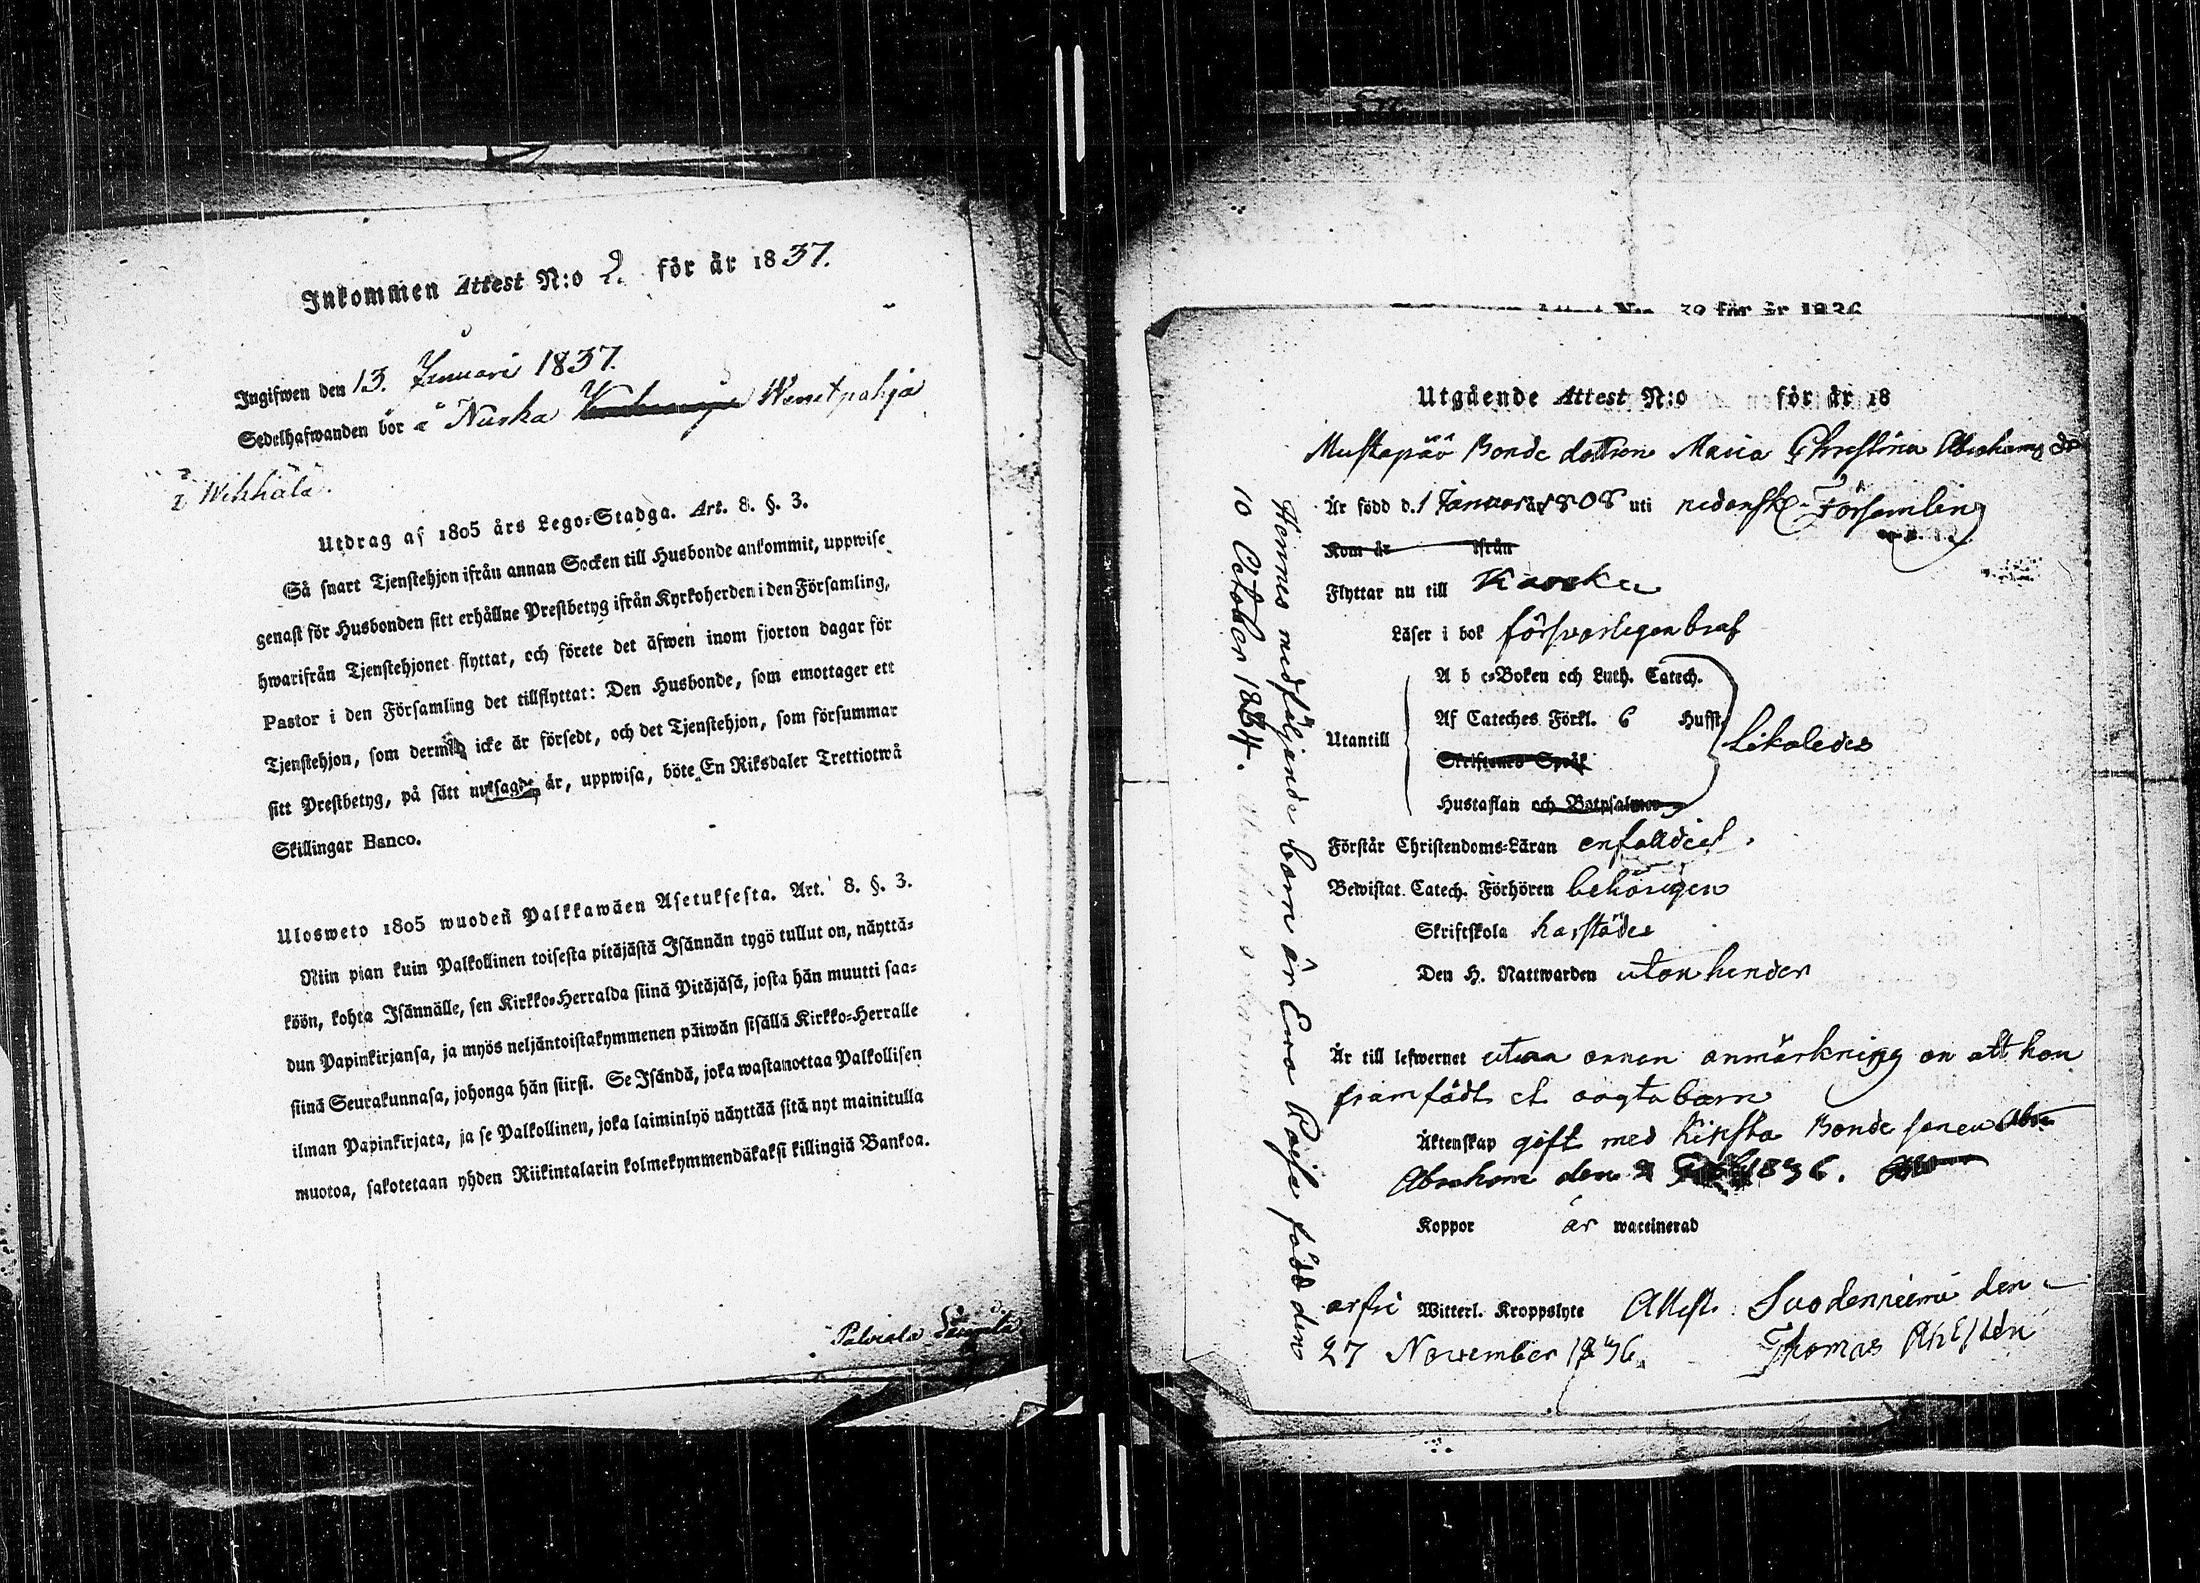 Inkommen Attest N:o 2. för år 1837.
Ingifwen den 13. Januari 1837.
Sedelhafwanden bor å Nuska Wenetpahja
i Wihhälä.
Utdrag af 1805 års Lego-Stadga. Art. 8. §. 3.
Så snart Tjenstehjon ifrån annan Socken till Husbonde ankommit, uppwise
genast för Husbonden sitt erhållne Prestbetyg ifrån Kyrkoherden i den Församling,
hwarifrån Tjenstehjonet flyttat, och förete det äfwen inom fjorton dagar för
Pastor i den Församling det tillflyttat: Den Husbonde, som emottager ett
Tjenstehjon, som dermed icke är försedt, och det Tjenstehjon, som försummar
sitt Prestbetyg, på sätt nu sagdt är, uppwisa, böte En Riksdaler Trettiotwå
Skillingar Banco.
Ulosweto 1805 wuoden Palkkawäen Asetuksesta. Art. 8. §. 3.
Niin pian kuin Palkollinen toisesta pitäjästä Isännän tygö tullut on, näyttä-
köön, kohta Isännälle, sen Kirkko-Herralda siinä Pitäjäsä, josta hän muutti saa-
dun Papinkirjansa, ja myös neljäntoistakymmenen päiwän sisällä Kirkko-Herralle
siinä Seurakunnasa, johonga hän siirsi. Se Isändä, joka wastanottaa Palkollisen
ilman Papinkirjata, ja se Palkollinen, joka laiminlyö näyttää sitä nyt mainitulla
muotoa, sakotetaan yhden Riikintalarin kolmekymmendäkaksi killingiä Bankoa.
Palviala
39 för år 1836
Utgående Attest N:o för år 18
Mustapää Bonde dottren Maria Christina Abrahams dr
Är född d. 1 Januari 1808 uti nedanskr. Församling
Kom år ifrån
Flyttar nu till Karku
Läser i bok försvarligen braf
A b c-Boken och Luth. Catech.
Af Cateches Förkl. 6 Hufst.
Utantill likaledes
Skriftenes Språk
Hustaflan och Botpsalmer
Förstår Christendoms-Läran enfalldigt.
Bewistat Catech. Förhören behörigen
Skriftskola
Den H. Nattwarden utan hinder
Är till lefwernet utan annan anmärkning än att hon
framfödt et oägta barn
Äktenskap gift med Kipsta Bonde sonen
Abraham den 1836.
Koppor är waccinerad
är fri Witterl. Kroppslyte Attest. Suodenniemi den
27 November 1836. Thomas
Hennes medföljande barn är Eva Kajsa född den
10 October 1834.